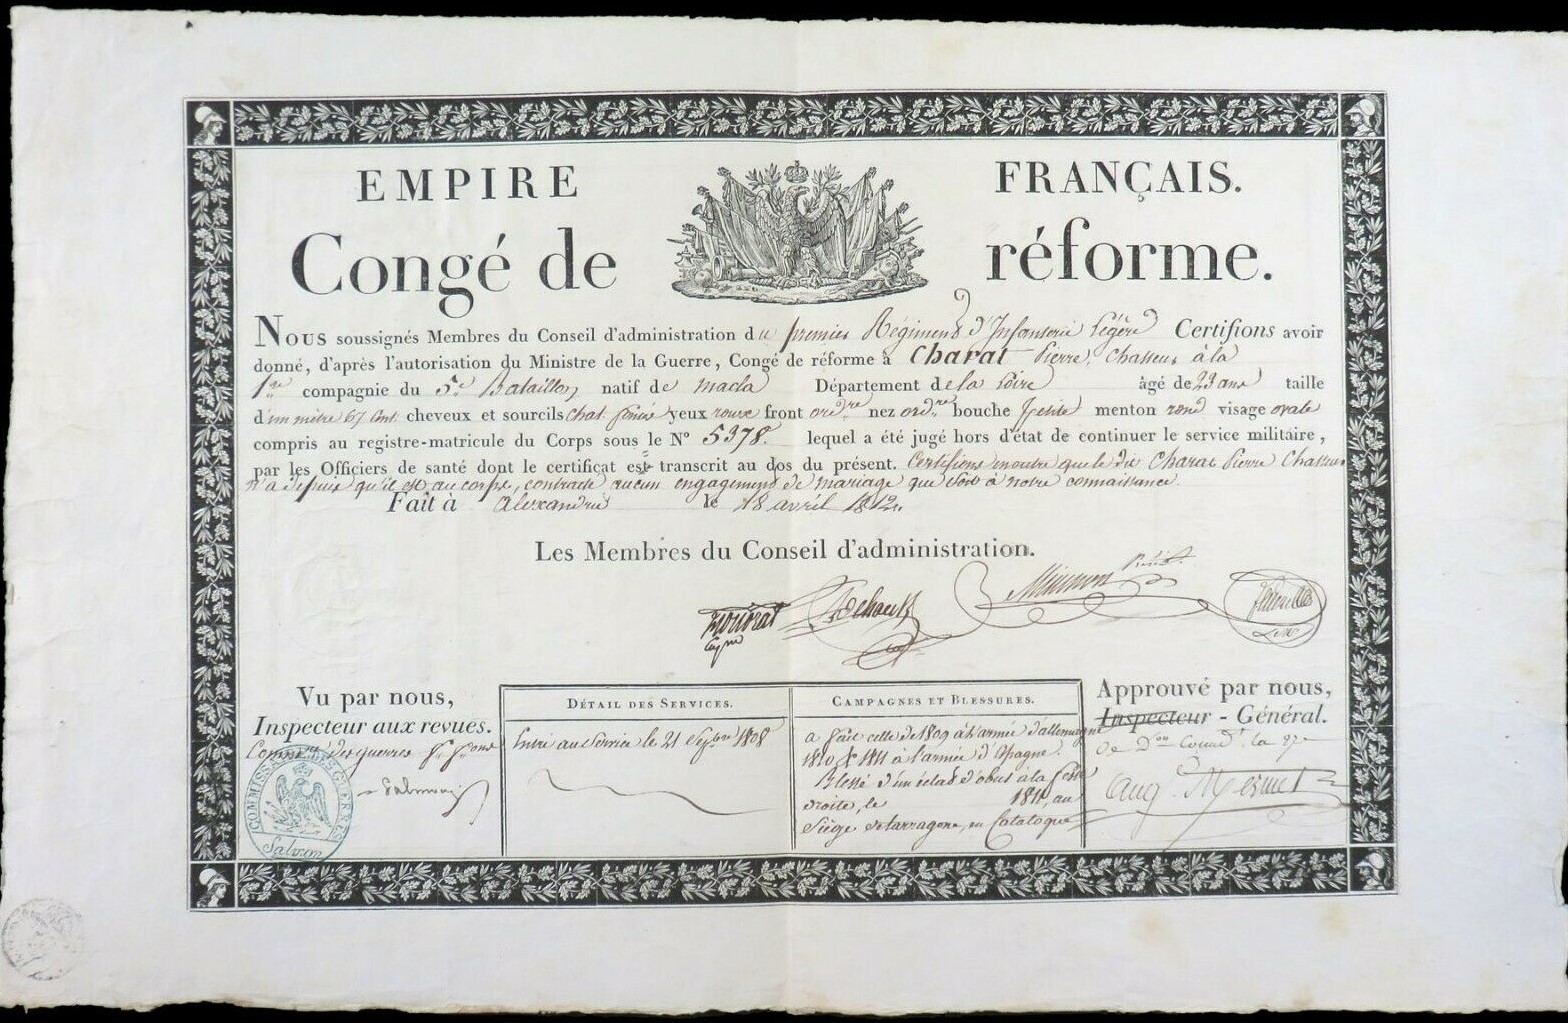 EMPIRE FRANÇAIS.
Congé de réforme.
Nous soussignés Membres du Conseil d'administration du premier Régiment d'Infanterie Légère Certifions avoir
donné, d'après l'autorisation du Ministre de la Guerre, Congé de réforme à Charat Pierre, Chasseur à la
1re compagnie du 5e Bataillon natif de macla Département de la Loire âgé de 23 ans taille
d'un mètre 67 Cent. cheveux et sourcils chat. foncé yeux roux front ordre nez ordre bouche petite menton rond visage ovale
compris au registre-matricule du Corps sous le No 5378. lequel a été jugé hors d'état de continuer le service militaire,
par les Officiers de santé dont le certificat est transcrit au dos du présent. Certifions en outre que le dit Charat Pierre Chasseur
n'a depuis qu'il est au corps, contracté aucun engagement de mariage que soit à notre connaissance.
Fait à alexandrie le 18 avril 1812.
Les Membres du Conseil d'administration.
Vu par nous,
Inspecteur aux revues.
des guerres
COMMISSAIRE DES GUERRES
Salvan
DÉTAIL DES SERVICES.
Entré au Service le 21 Septbre 1808
CAMPAGNES ET BLESSURES.
a fait celle de 1809 à l'armée d'allemagne
1810 & 1811 à l'armée d'Espagne.
Blessé d'un éclat d'obus à la fesse
droite, le 1811, au
Siège de tarragone, en Catalogne
Approuvé par nous,
Inspecteur - Général.
de Don Commdt la 27e
Aug. Mermet